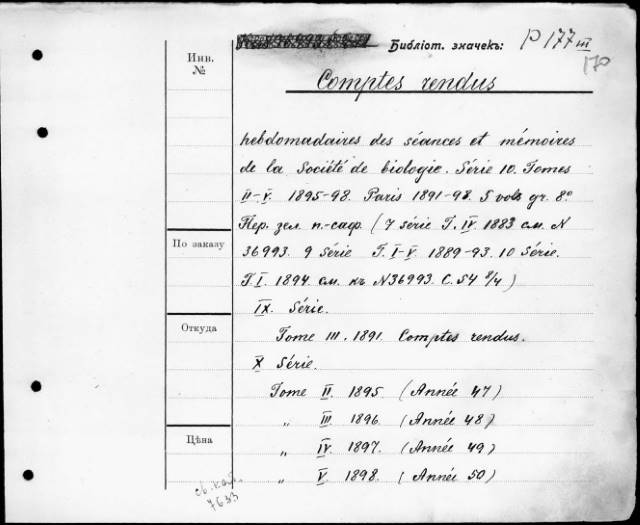 Библіот. значекъ: P 177 III
170
Инв. №
Comptes rendus
hebdomadaires des séances et mémoires
de la Société de biologie. Série 10. Tomes
II-V. 1895-98. Paris 1891-98. 5 vols gr. 8º
Пер. зел. п.-саф. (7 série T. IV. 1883 см. N
По заказу
36993. 9 série T. I-V. 1889-93. 10 Série.
T. I. 1894. см. къ N36993. C. 54 8/4)
IX. Série.
Откуда
Tome III. 1891. Comptes rendus.
X Série.
Tome II. 1895. (Année 47)
„ III. 1896. (Année 48)
Цѣна
„ IV. 1897. (Année 49)
„ V. 1898. (Année 50)
св. кат.
7633